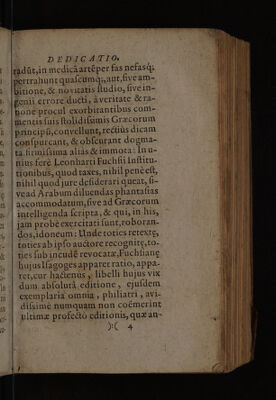 DEDICATIO.
tadūt, in medicā artē per fas nefasq;
pertrahunt quascumq;, aut, siue am-
bitione, & nouitatis studio, siue in-
genii errore ducti, à veritate & ra-
tione procul exorbitantibus com-
mentis suis stolidissimis Græcorum
principū, conuellunt, rectiùs dicam
conspurcant, & obscurant dogma-
ta firmissima aliàs & immota: In u-
nius ferè Leonharti Fuchsii Institu-
tionibus, quod taxes, nihil penè est,
nihil quod iure desiderari queat, si-
ve ad Arabum diluendas phantasias
accommodatum, siue ad Græcorum
intelligenda scripta, & qui, in his,
jam probè exercitati sunt, roboran-
dos, idoneum: Unde toties retextę,
toties ab ipso auctore recognitę, to-
ties sub incudē revocatæ, Fuchsianę
hujus Isagoges apparet ratio, appa-
ret, cur hactenus, libelli hujus vix
dum absolutâ editione, ejusdem
exemplaria omnia, philiatri, avi-
dissimè numquam non coëmerint
ultimæ profectò editionis, quæ an-
):( 4